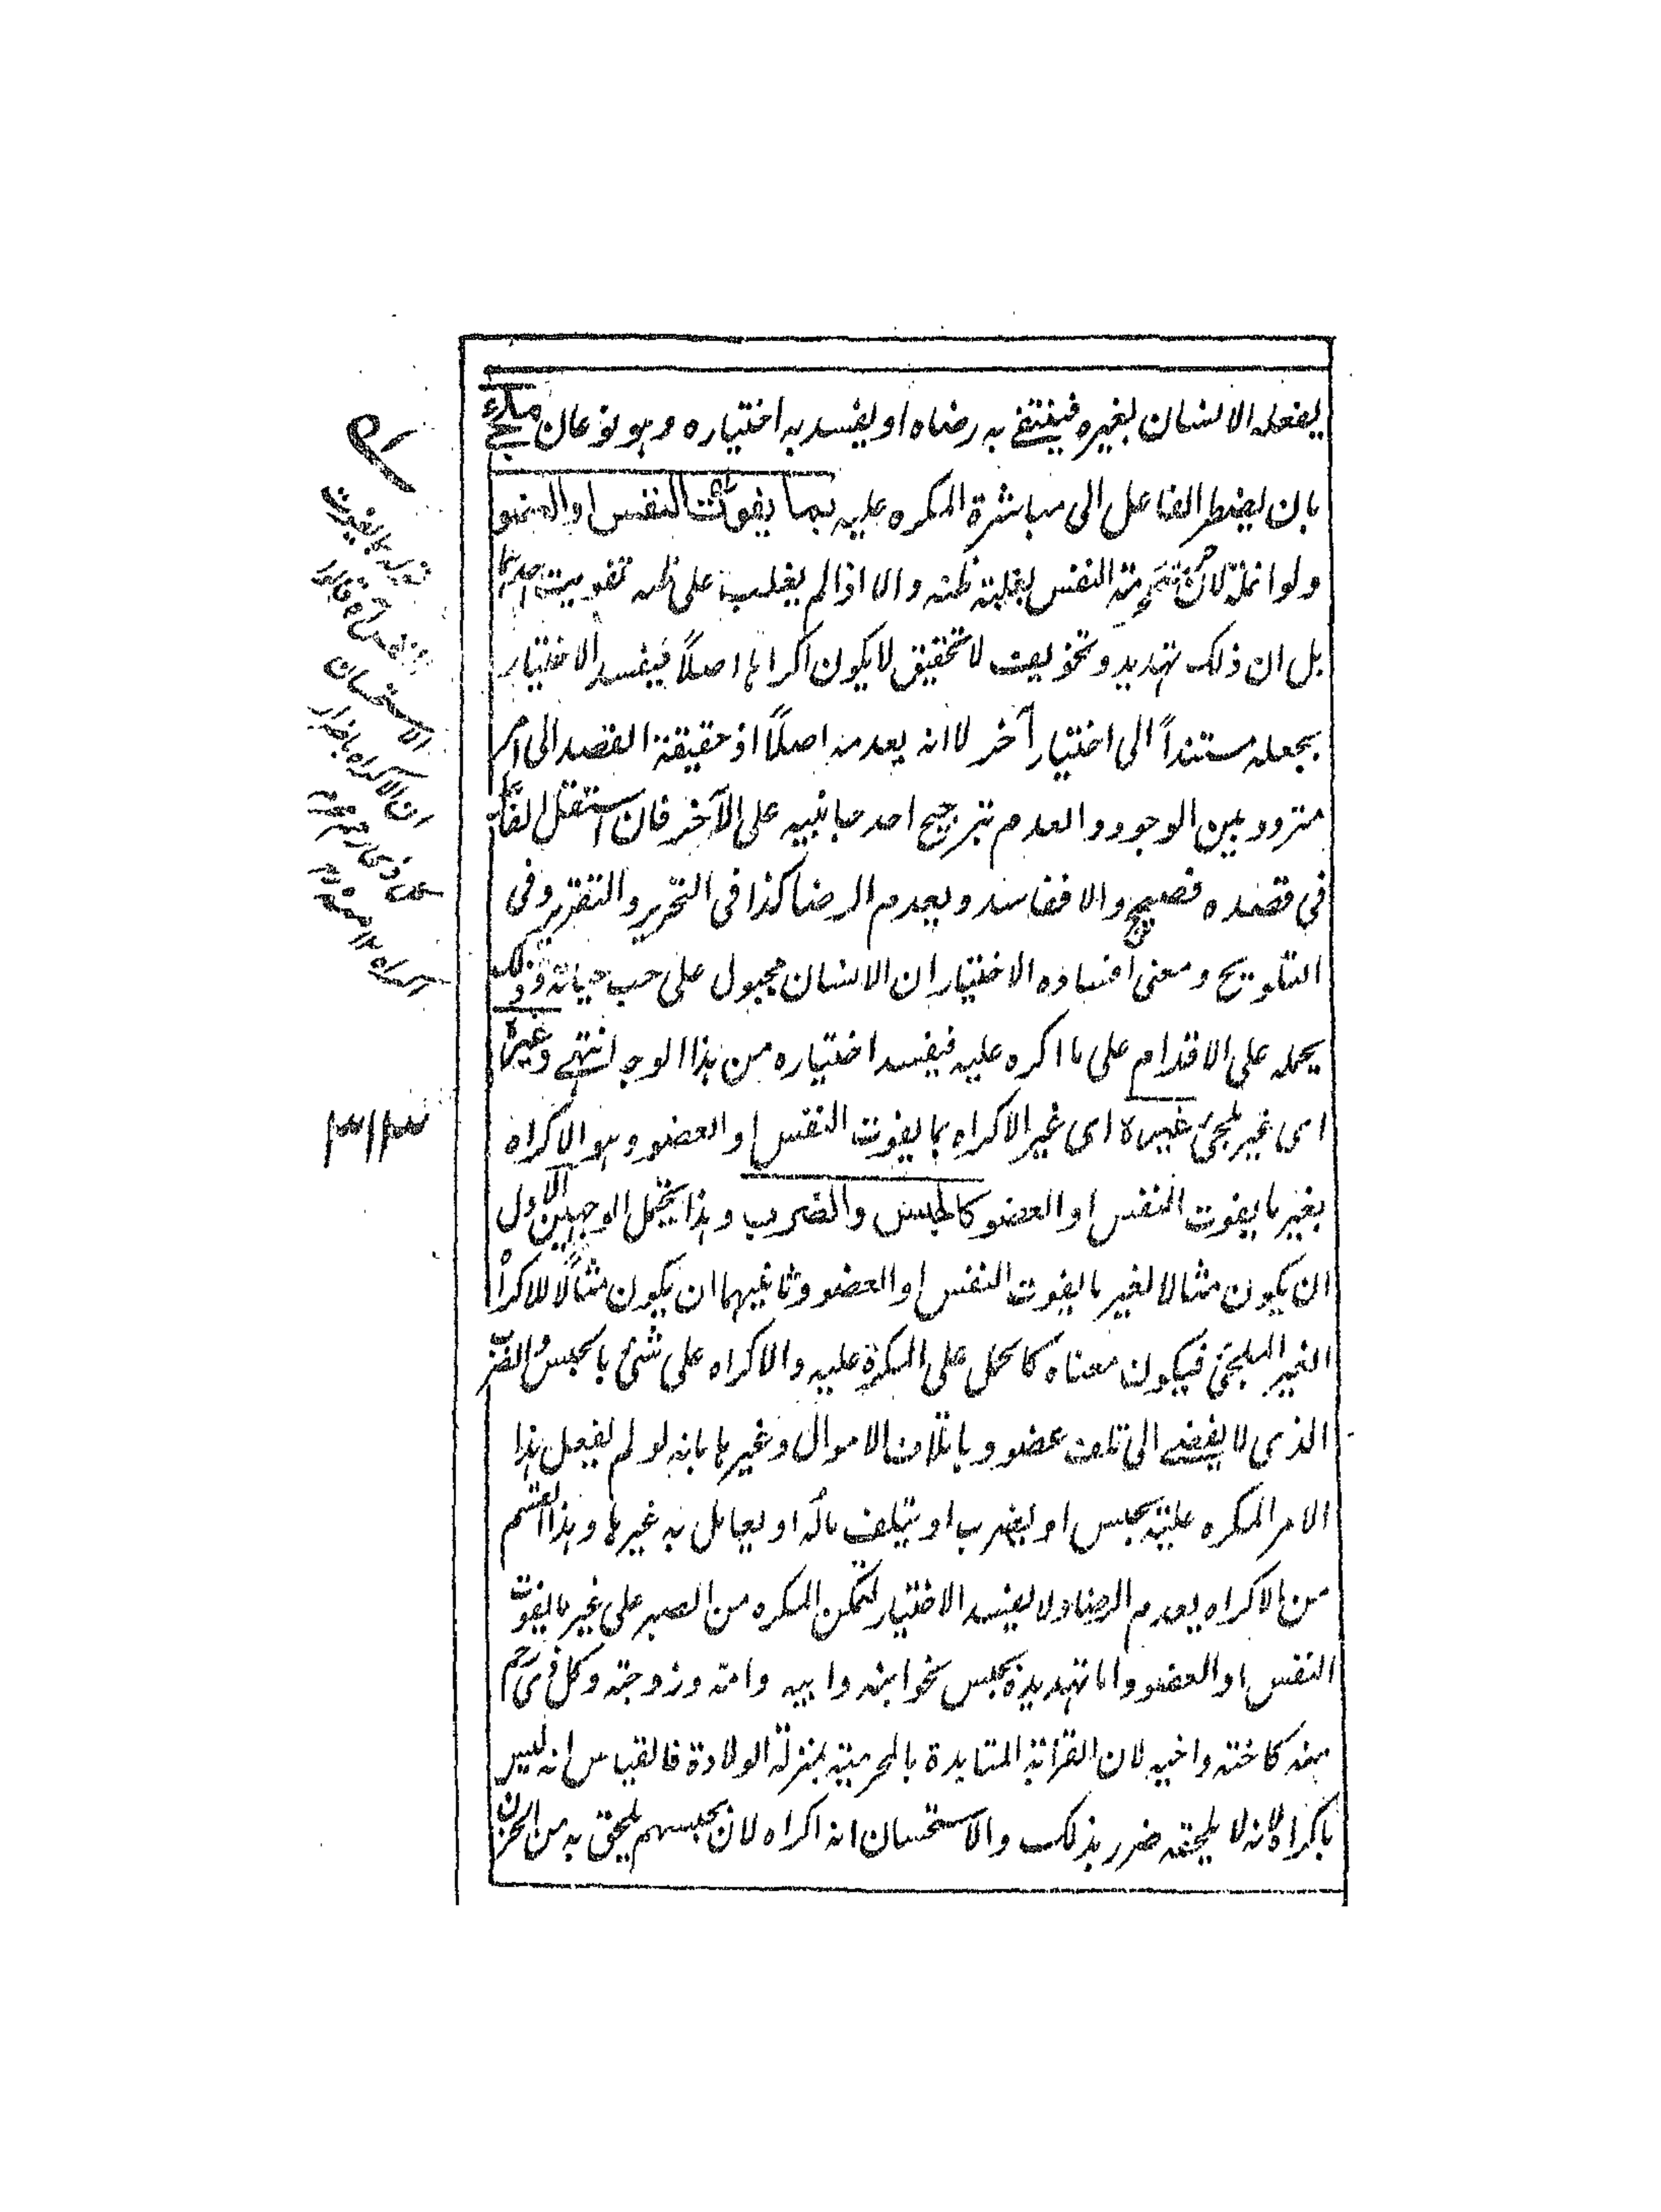 يفعله الانسان لغيره فينتفے به رضاه او يفسد به اختياره وهو نوعان ملجئ
بان يضطر الفاعل الى مباشرة المكره عليه بما يفوت النفس او العضو
ولو انملة لان حرمته النفس لغلبة ظنه والا اذا لم يغلب على ظنه تفويت احدهما
بل ان ذلك تهديد وتخويف لا تحقيق لا يكون اكراها اصلاً فيفسد الاختيار
بجعله مستنداً الى اختيار آخر لا انه يعدمه اصلاً اذ حقيقة القصد الى امر
متردد بين الوجود والعدم بترجيح احد جانبيه على الآخر فان استقل الفاعل
فى قصده فصحيح والا ففاسد ويعدم الرضا كذا فى التحرير والتقرير وفى
التلويح ومعنى افساده الاختيار ان الانسان مجبول على حب حياته وذلك
يحمله على الاقدام على ما اكره عليه فيفسد اختياره من هذا الوجه انتهے وغيره
اى غير ملجئ غيره اى غير الاكراه بما يفوت النفس او العضو وهو الاكراه
بغير ما يفوت النفس او العضو كالحبس والضرب وهذا يحتمل الوجهين الاول
ان يكون مثالا لغير ما يفوت النفس او العضو وثانيهما ان يكون مثالاً للاكراه
الغير الملجئ فيكون معناه كالحمل على المكره عليه والاكراه على شئ بالحبس والضرب
الذى لا يفضے الى تلف عضو وباتلاف الاموال وغيرها بانه لو لم يفعل هذا
الامر المكره عليه يحبس او يضرب او يتلف ماله او يعامل به غيرها وهذا القسم
من الاكراه يعدم الرضا ولا يفسد الاختيار لتمكن المكره من الصبر على غير ما يفوت
النفس او العضو واما تهديده بحبس نحو ابنه وابيه وامه وزوجته وكل ذى رحم
منه كاخته واخيه لان القرابة المتأيدة بالمحرمية بمنزلة الولادة فالقياس انه ليس
باكراه لانه لا يلحقه ضرر بذلك والاستحسان انه اكراه لان بحبسهم يلحق به من الحزن
الاستحسان
ان الاكراه باضرار
٣١٣